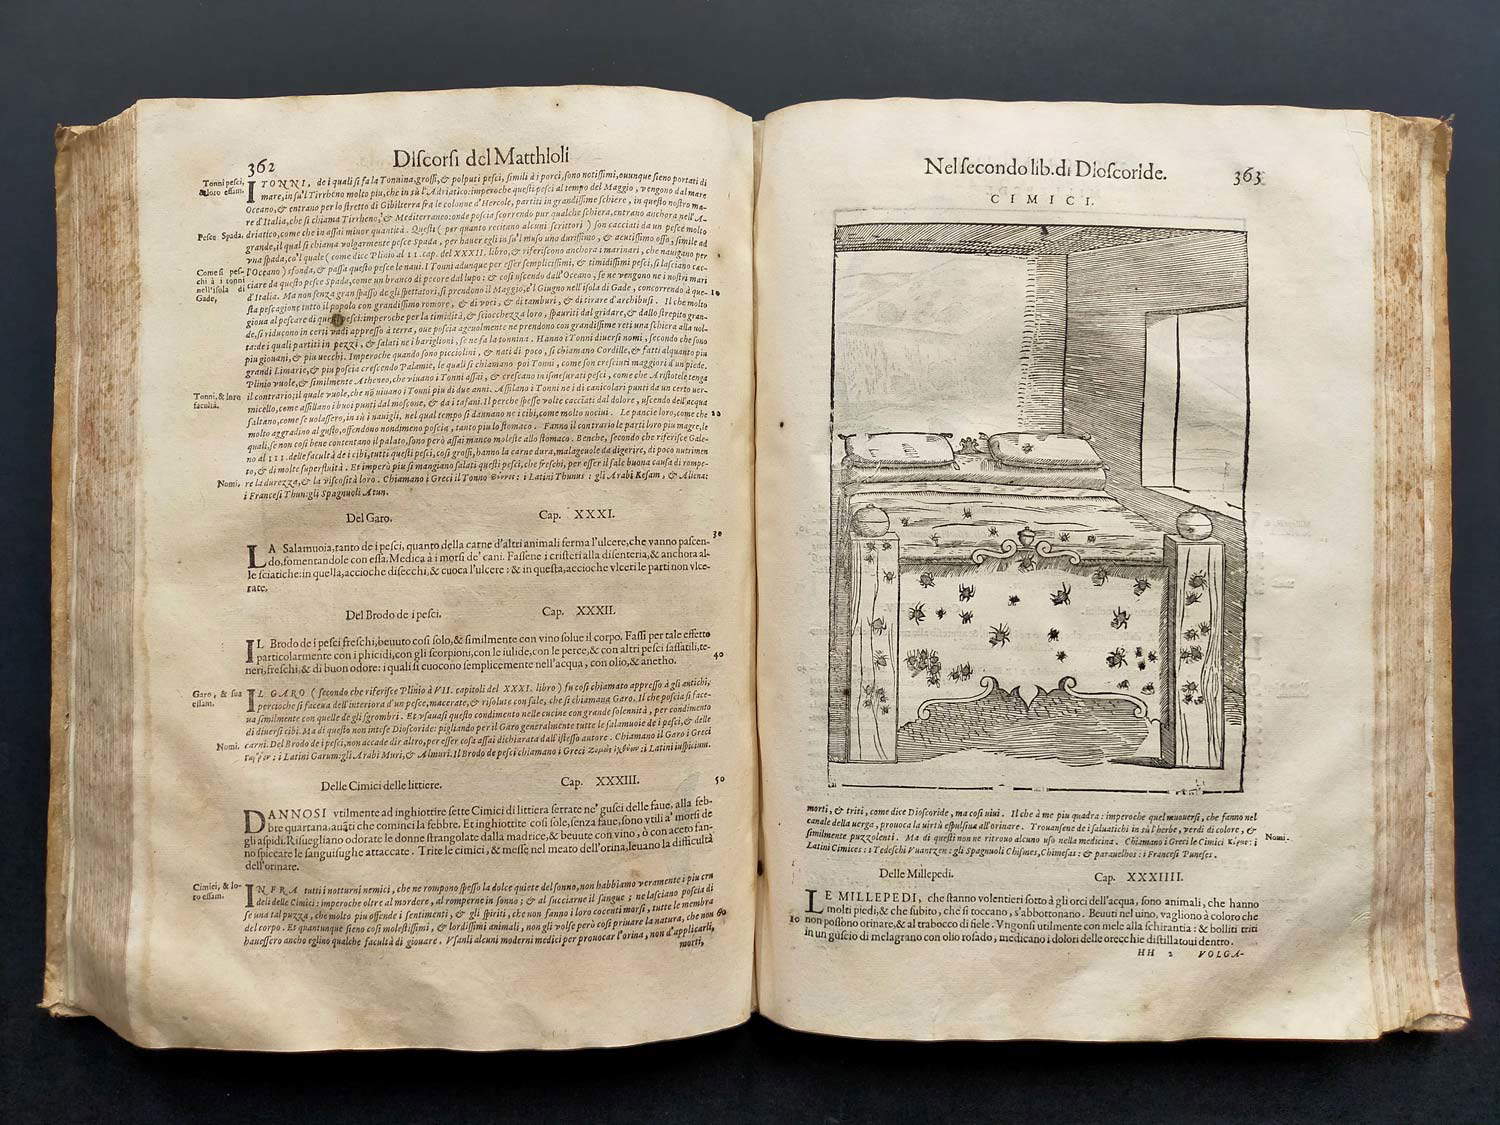 362
Discorsi del Matthioli
Tonni pesci,
& loro essam.
Pesce Spada.
Come si pes-
chi à i tonni
nell'isola di
Gade,
Tonni, & loro
facultà.
Nomi.
I TONNI, de i quali si fa la Tonnina, grossi, & polputi pesci, simili à i porci, sono notissimi, ouunque sieno portati di
mare, in su'l Tirrheno molto piu, che in sù l'Adriatico: imperoche questi pesci al tempo del Maggio, vengono dal mare
Oceano, & entrano per lo stretto di Gibilterra fra le colonne d'Hercole, partiti in grandissime schiere, in questo nostro ma-
re d'Italia, che si chiama Tirrheno, & Mediterraneo: onde poscia scorrendo pur qualche schiera, entrano anchora nell'A-
driatico, come che in assai minor quantità. Questi (per quanto recitano alcuni scrittori) son cacciati da un pesce molto
grande, il qual si chiama volgarmente pesce Spada, per hauer egli in su'l muso uno durissimo, & acutissimo osso, simile ad
vna spada, co'l quale (come dice Plinio al II. cap. del XXXII. libro, & riferiscono anchora i marinari, che nauigano per
l'Oceano) sfonda, & passa questo pesce le naui. I Tonni adunque per esser semplicissimi, & timidissimi pesci, si lasciano cac-
ciare da questo pesce Spada, come un branco di pecore dal lupo: & cosi uscendo dall'Oceano, se ne vengono ne i nostri mari
d'Italia. Ma non senza gran spasso de gli spettatori, si prendono il Maggio, e'l Giugno nell'isola di Gade, concorrendo à que- 10
sta pescagione tutto il popolo con grandissimo romore, & di voci, & di tamburi, & di tirare d'archibusi. Il che molto
gioua al pescare di questi pesci: imperoche per la timidità, & sciocchezza loro, spauriti dal gridare, & dallo strepito gran-
de, si riducono in certi vadi appresso à terra, oue poscia ageuolmente ne prendono con grandissime reti una schiera alla uol-
ta: de i quali partiti in pezzi, & salati ne i bariglioni, se ne fa la tonnina. Hanno i Tonni diuersi nomi, secondo che sono
piu giouani, & piu uecchi. Imperoche quando sono picciolini, & nati di poco, si chiamano Cordille, & fatti alquanto piu
grandi Limarie, & piu poscia crescendo Palamie, le quali si chiamano poi Tonni, come son cresciuti maggiori d'un piede.
Plinio vuole, & similmente Atheneo, che viuano i Tonni assai, & crescano in ismesurati pesci, come che Aristotele tenga
il contrario; il quale vuole, che nò viuano i Tonni piu di due anni. Assilano i Tonne ne i di canicolari punti da un certo uer-
micello, come assillano i buoi punti dal moscone, & da i tafani. Il perche spesse volte cacciati dal dolore, uscendo dell'acqua
saltano, come se uolassero, in sù i nauigli, nel qual tempo si dannano ne i cibi, come molto nociui. Le pancie loro, che come 20
molto aggradino al gusto, offendono nondimeno poscia, tanto piu lo stomaco. Fanno il contrario le parti loro piu magre, le
quali, se non cosi bene contentano il palato, sono però assai manco moleste allo stomaco. Benche, secondo che riferisce Gale-
no al III. delle facultà de i cibi, tutti questi pesci, cosi grossi, hanno la carne dura, malageuole da digerire, di poco nutrimen
to, & di molte superfluità. Et imperò piu si mangiano salati questi pesci, che freschi, per esser il sale buona causa di rompe-
re la durezza, & la viscosità loro. Chiamano i Greci il Tonno Θύννος: i Latini Thunus: gli Arabi Kesam, & Altina:
i Francesi Thun: gli Spagnuoli Atun.
Del Garo. Cap. XXXI.
30
LA Salamuoia, tanto de i pesci, quanto della carne d'altri animali ferma l'ulcere, che vanno pascen-
do, fomentandole con essa. Medica à i morsi de' cani. Fassene i cristeri alla disenteria, & anchora al-
le sciatiche: in quella, accioche disecchi, & cuoca l'ulcere: & in questa, accioche vlceri le parti non vlce-
rate.
Del Brodo de i pesci. Cap. XXXII.
IL Brodo de i pesci freschi, beuuto cosi solo, & similmente con vino solue il corpo. Fassi per tale effetto
particolarmente con i phicidi, con gli scorpioni, con le iulide, con le perce, & con altri pesci sassatili, te- 40
neri, freschi, & di buon odore: i quali si cuocono semplicemente nell'acqua, con olio, & anetho.
Garo, & sua
essam.
Nomi.
IL GARO (secondo che riferisce Plinio à VII. capitoli del XXXI. libro) fu cosi chiamato appresso à gli antichi,
percioche si faceua dell'interiora d'un pesce, macerate, & risolute con sale, che si chiamaua Garo. Il che poscia si face-
ua similmente con quelle de gli sgombri. Et vsauasi questo condimento nelle cucine con grande solennità, per condimento
di diuersi cibi. Ma di questo non intese Dioscoride: pigliando per il Garo generalmente tutte le salamuoie de i pesci, & delle
carni. Del Brodo de i pesci, non accade dir altro, per esser cosa assai dichiarata dall'istesso autore. Chiamano il Garo i Greci
Γάρον: i Latini Garum: gli Arabi Muri, & Almuri. Il Brodo de pesci chiamano i Greci Ζωμὸς ἰχθύων: i Latini iuspiscium.
Delle Cimici delle littiere. Cap. XXXIII. 50
DANNOSI vtilmente ad inghiottire sette Cimici di littiera serrate ne' gusci delle faue, alla feb-
bre quartana, auãti che cominci la febbre. Et inghiottite cosi sole, senza faue, sono vtili a' morsi de
gli aspidi. Risuegliano odorate le donne strangolate dalla madrice, & beuute con vino, ò con aceto fan-
no spiccare le sanguisughe attaccate. Trite le cimici, & messe nel meato dell'orina, leuano la difficultà
dell'orinare.
Cimici, & lo-
ro essam.
INFRA tutti i notturni nemici, che ne rompono spesso la dolce quiete del sonno, non habbiamo veramente i piu cru
deli delle Cimici: imperoche oltre al mordere, al romperne in sonno; & al succiarne il sangue; ne lasciano poscia di
se una tal puzza, che molto piu offende i sentimenti, & gli spiriti, che non fanno i loro cocenti morsi, tutte le membra
del corpo. Et quantunque sieno cosi molestissimi, & lordissimi animali, non gli volse però cosi priuare la natura, che non 60
hauessero ancho eglino qualche facultà di giouare. Vsanli alcuni moderni medici per prouocar l'orina, non d'applicarli,
morti,
Nel secondo lib. di Dioscoride.
363
CIMICI.
morti, & triti, come dice Dioscoride, ma cosi uiui. Il che à me piu quadra: imperoche quel muouersi, che fanno nel
canale della uerga, prouoca la uirtù espulsiua all'orinare. Trouansene di saluatichi in sù l'herbe, verdi di colore, &
similmente puzzolenti. Ma di questi non ne ritrouo alcuno uso nella medicina. Chiamano i Greci le Cimici Κόρεις: i
Latini Cimices: i Tedeschi Vuantzen: gli Spagnuoli Chismes, Chimesas: & parauelhos: i Francesi Puneses.
Nomi.
Delle Millepedi. Cap. XXXIIII.
LE MILLEPEDI, che stanno volentieri sotto à gli orci dell'acqua, sono animali, che hanno
molti piedi, & che subito, che si toccano, s'abbottonano. Beuuti nel uino, vagliono à coloro che
10 non possono orinare, & al trabocco di fiele. Vngonsi utilmente con mele alla schirantia: & bolliti triti
in un guscio di melagrano con olio rosado, medicano i dolori delle orecchie distillatoui dentro.
HH 2 VOLGA-